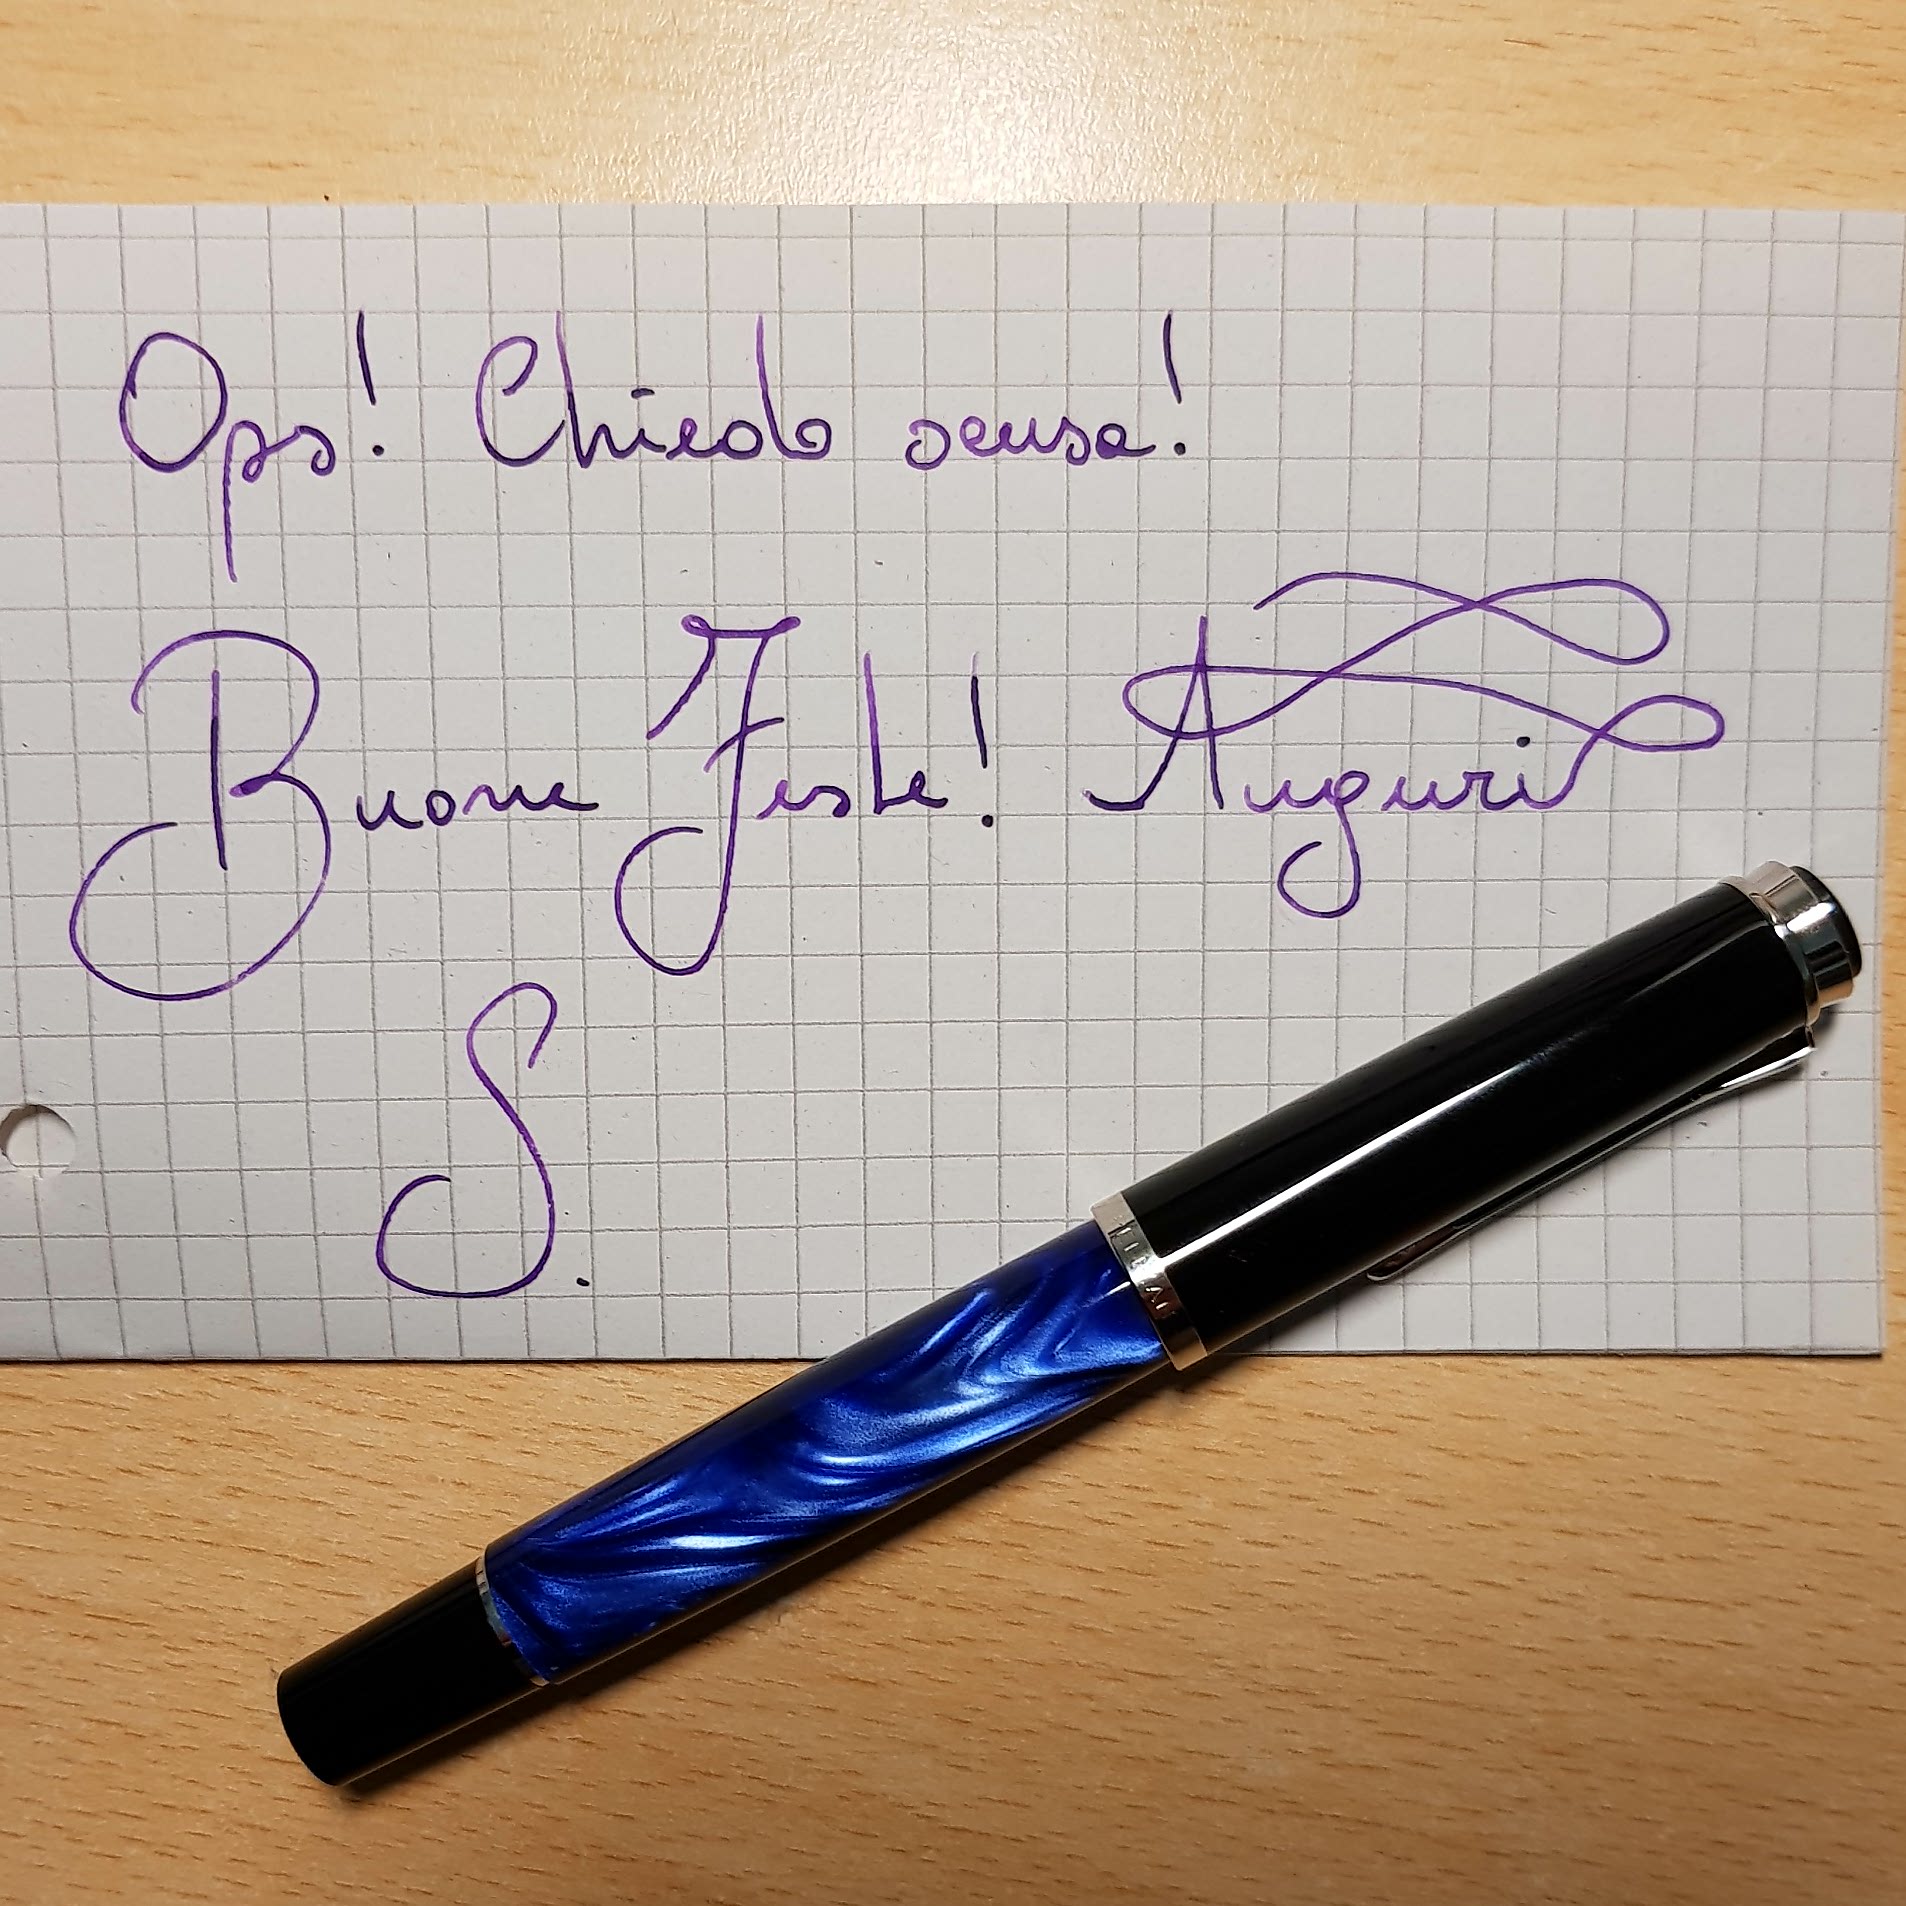 Ops! Chiedo scusa!
Buone Feste! Auguri
S.